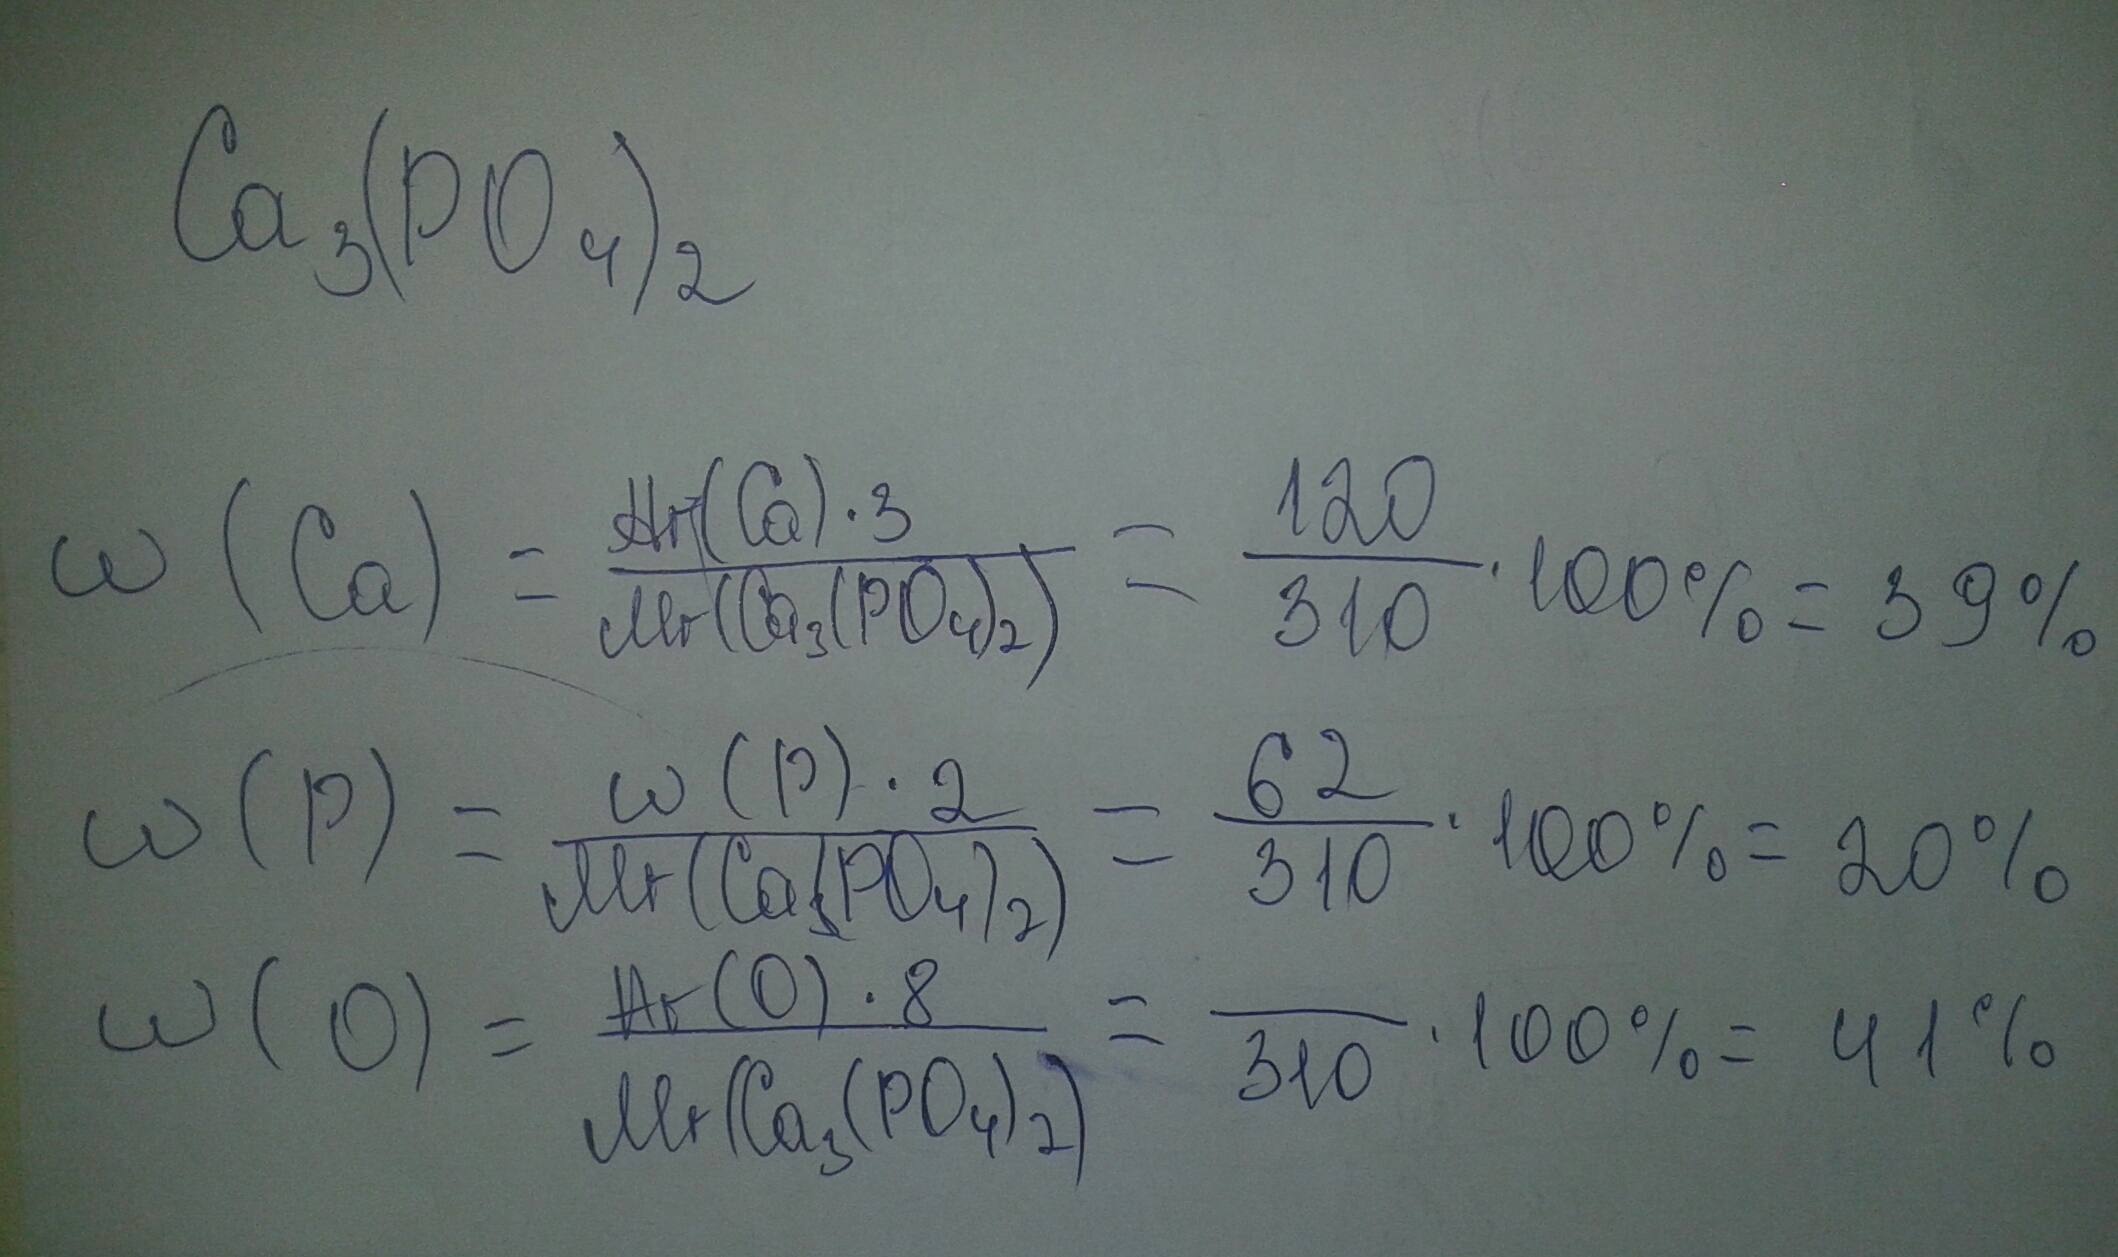 Ca₃(PO₄)₂
ω(Ca) = Ar(Ca)·3 / Mr(Ca₃(PO₄)₂) = 120 / 310 · 100% = 39%
ω(P) = ω(P)·2 / Mr(Ca₃(PO₄)₂) = 62 / 310 · 100% = 20%
ω(O) = Ar(O)·8 / Mr(Ca₃(PO₄)₂) = / 310 · 100% = 41%